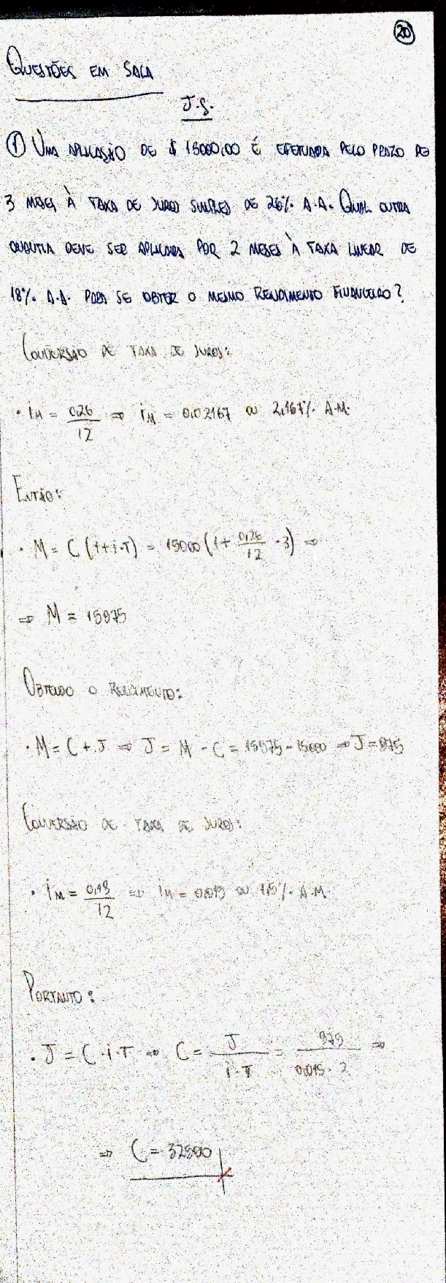 20
Questões em Sala
J.S.
① Uma aplicação de $ 15000,00 é efetuada pelo prazo de
3 meses à taxa de juros simples de 26% a.a. Qual outra
quantia deve ser aplicada por 2 meses à taxa linear de
18% a.a. para se obter o mesmo rendimento financeiro?
Conversão de taxa de juros:
• iM = 0,26/12 ⇒ iM = 0,02167 ou 2,167% A.M.
Então:
• M = C (1+i·T) = 15000 (1 + 0,26/12 · 3) ⇒
⇒ M = 15975
Obtendo o rendimento:
• M = C + J ⇒ J = M - C = 15975 - 15000 ⇒ J = 975
Conversão de taxa de juros:
• iM = 0,18/12 ⇒ iM = 0,015 ou 1,5% A.M.
Portanto:
• J = C·i·T ⇒ C = J/i·T = 975/0,015·2 ⇒
⇒ C = 32500